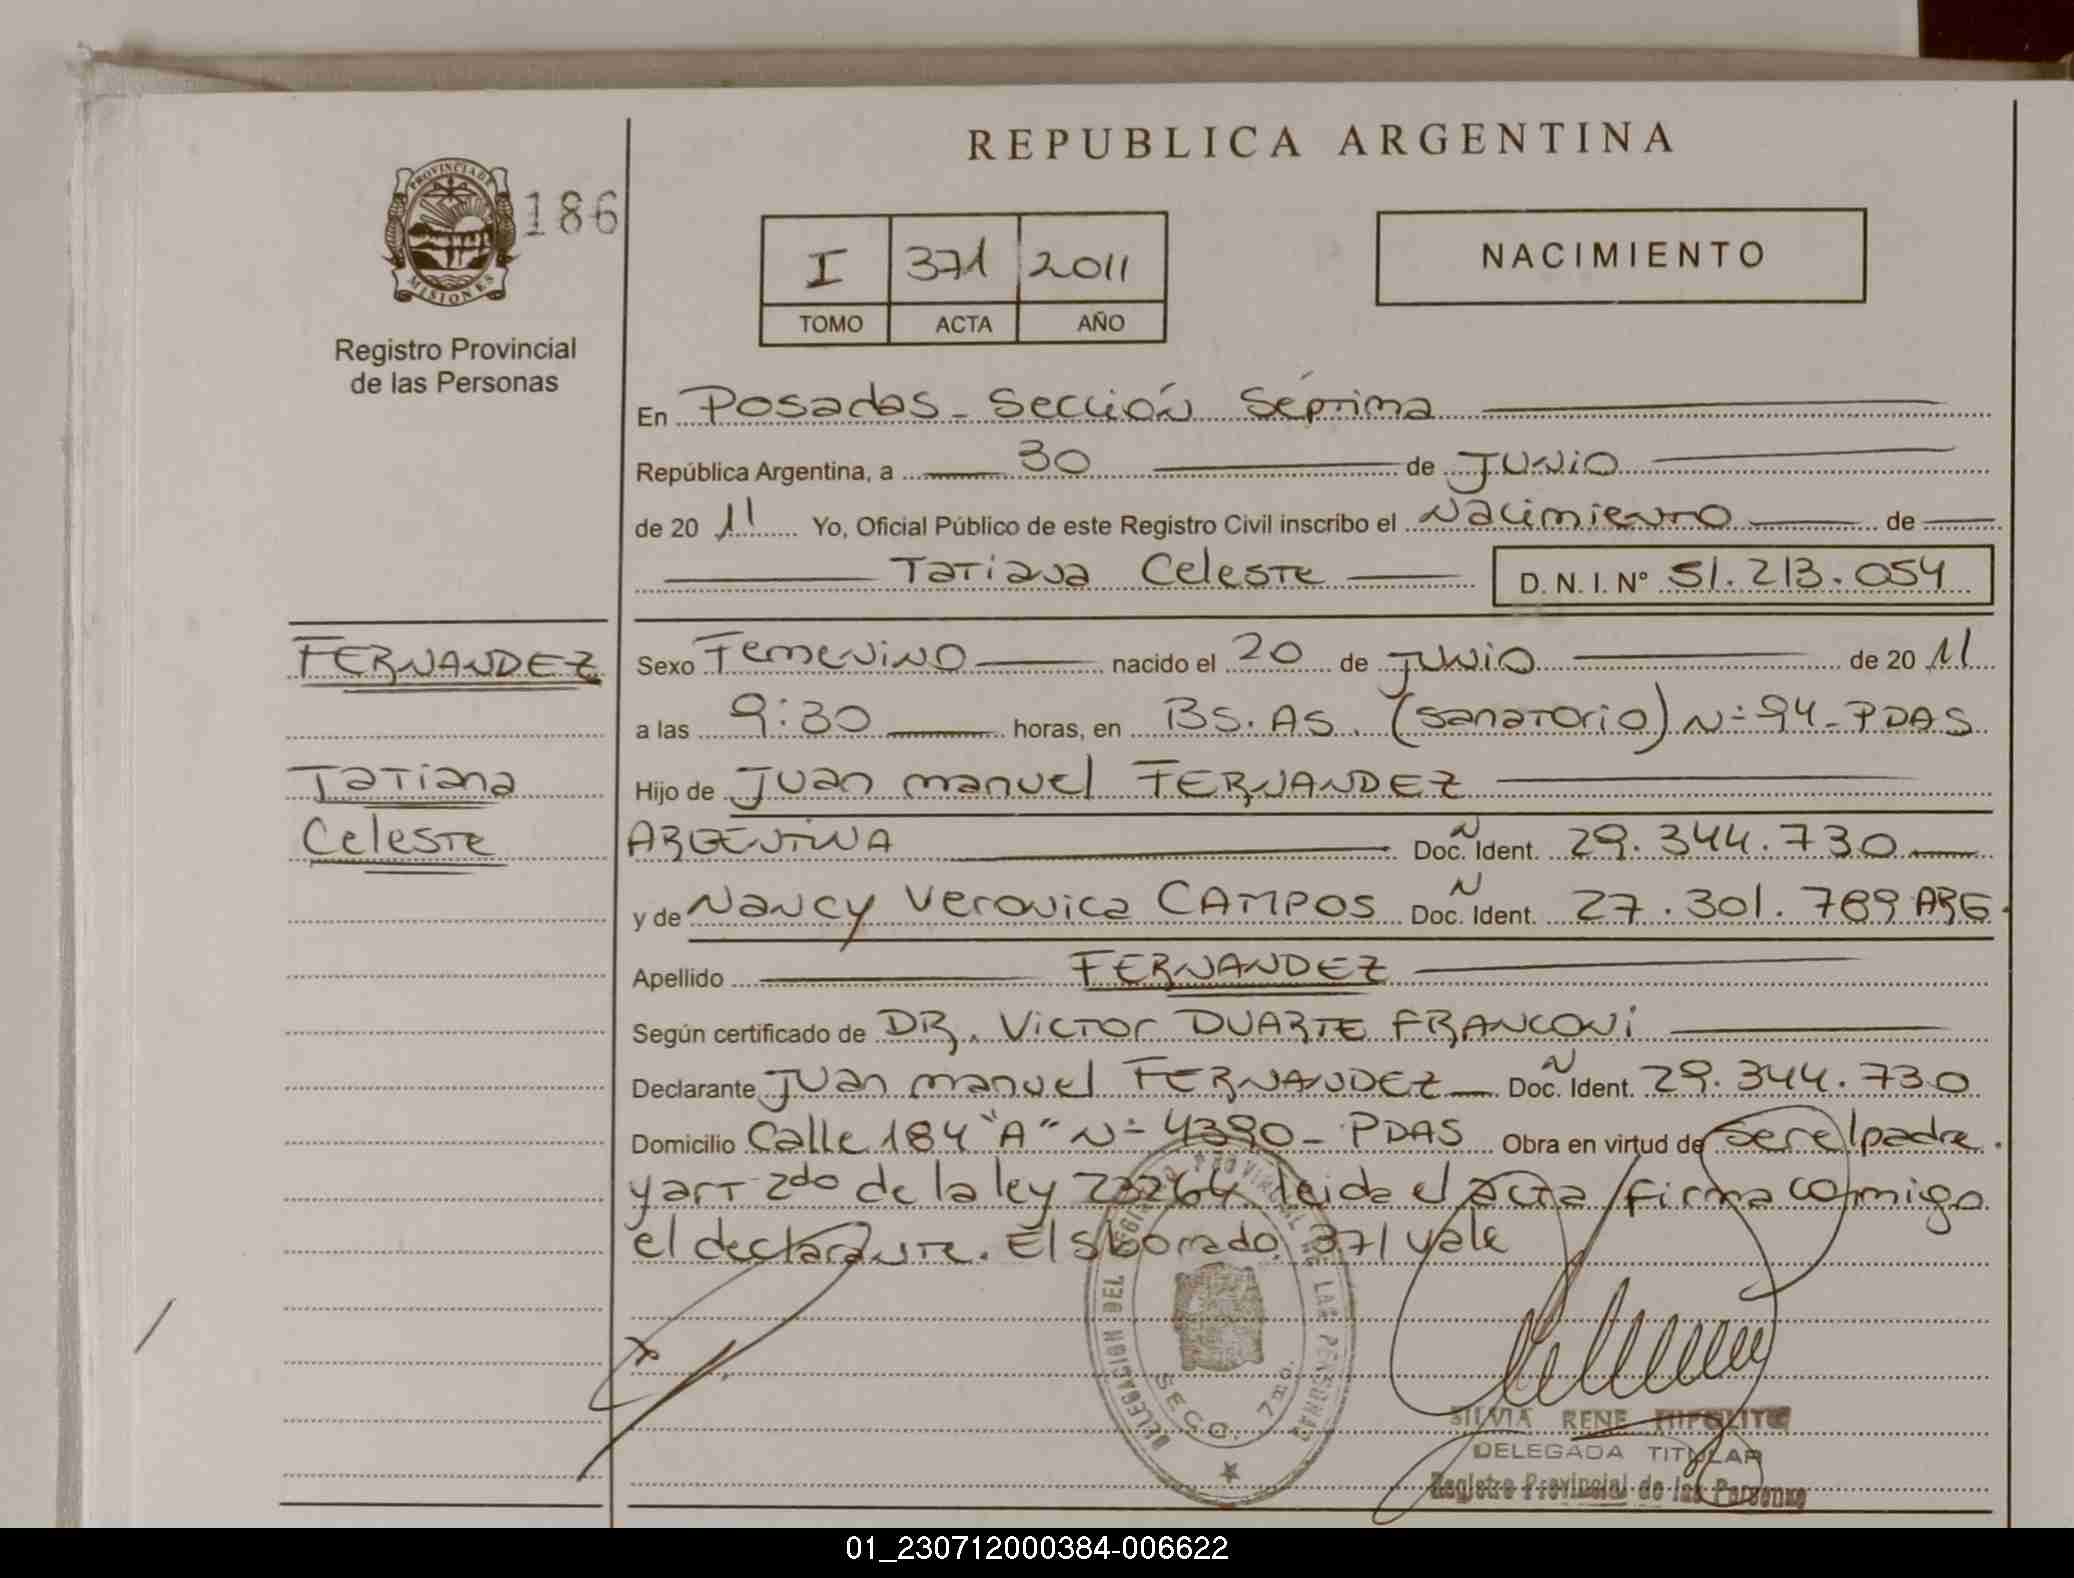 REPUBLICA ARGENTINA
PROVINCIA DE
MISIONES
186
I 371 2011
TOMO ACTA AÑO
NACIMIENTO
Registro Provincial
de las Personas
En Posadas - Sección Séptima
República Argentina, a 30 de JUNIO
de 20 11 Yo, Oficial Público de este Registro Civil inscribo el Nacimiento de
Tatiana Celeste D. N. I. N° 51.213.054
FERNANDEZ
Sexo Femenino nacido el 20 de JUNIO de 20 11
a las 9:30 horas, en BS. AS. (Sanatorio) N° 94 - PDAS
Tatiana
Hijo de Juan manuel FERNANDEZ
Celeste
ARGENTINA Doc. Ñ Ident. 29.344.730
y de Nancy Veronica CAMPOS Doc. Ñ Ident. 27.301.789 ARG.
Apellido FERNANDEZ
Según certificado de DR. Victor DUARTE FRANCONi
Declarante Juan manuel FERNANDEZ Doc. Ñ Ident. 29.344.730
Domicilio Calle 184 "A" N° 4390 - PDAS Obra en virtud de ser el padre.
y art 2do de la ley 23264. leida el acta firma conmigo
el declarante. El s/borrado. 371 vale
DELEGACION DEL REGISTRO PROVINCIAL DE LAS PERSONAS
SECC. 7ma.
SILVIA RENE HIPOLITO
DELEGADA TITULAR
Registro Provincial de las Personas
01_230712000384-006622